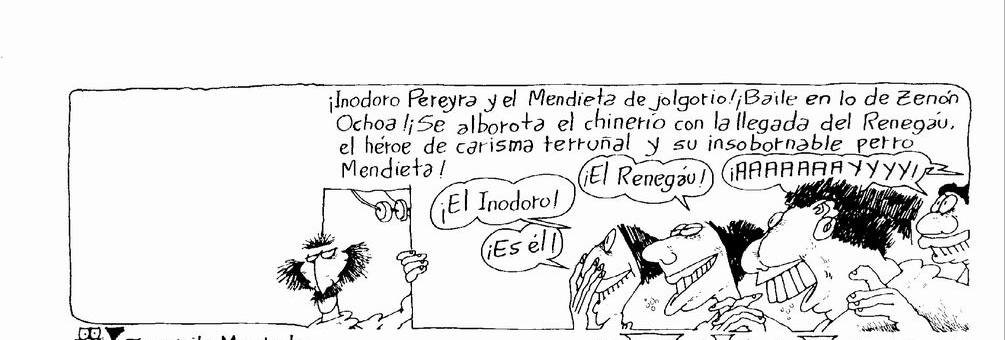 ¡Inodoro Pereyra y el Mendieta de jolgorio! ¡Baile en lo de Zenón
Ochoa! ¡Se alborota el chinerío con la llegada del Renegáu,
el héroe de carisma terruñal y su insobornable perro
Mendieta!
¡El Inodoro!
¡Es él!
¡El Renegáu!
¡AAAAAAAAYYYY!